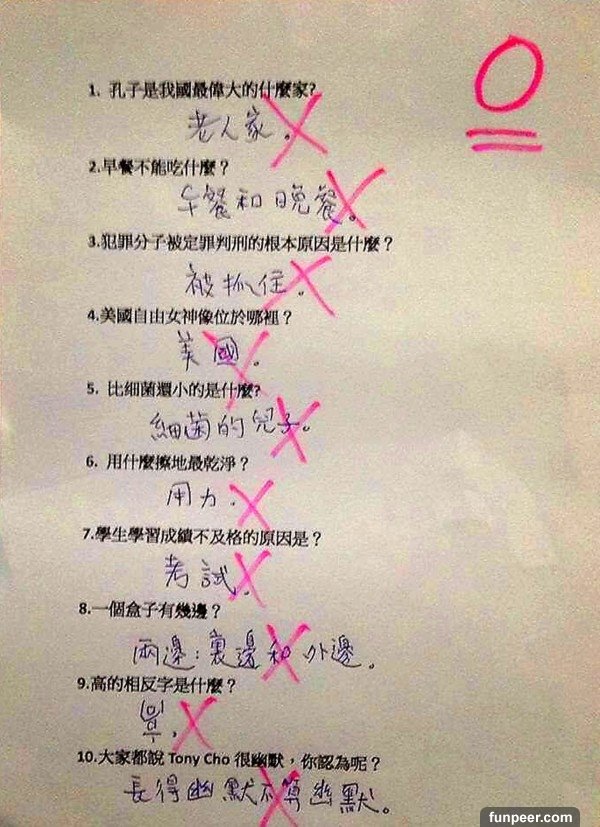 0
1. 孔子是我國最偉大的什麼家?
老人家。
2.早餐不能吃什麼？
午餐和晚餐。
3.犯罪分子被定罪判刑的根本原因是什麼？
被抓住。
4.美國自由女神像位於哪裡？
美國。
5. 比細菌還小的是什麼?
細菌的兒子。
6. 用什麼擦地最乾淨？
用力.
7.學生學習成績不及格的原因是？
考試.
8.一個盒子有幾邊？
兩邊：裏邊和外邊。
9.高的相反字是什麼？
10.大家都說 Tony Cho 很幽默，你認為呢？
長得幽默不算幽默。
funpeer.com